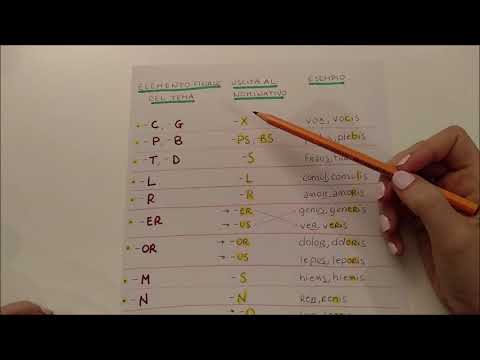 ELEMENTO FINALE USCITA AL ESEMPIO
DEL TEMA NOMINATIVO
-C, -G -X vox, vocis
-P, -B -PS, -BS plebis
-T, -D -S
-L -L consul, consulis
-R -R amor, amoris
-ER → -ER genus, generis
→ -US ver, veris
-OR → -OR dolor, doloris
→ -US lepus, leporis
-M -S hiems, hiemis
-N -N Ren, renis